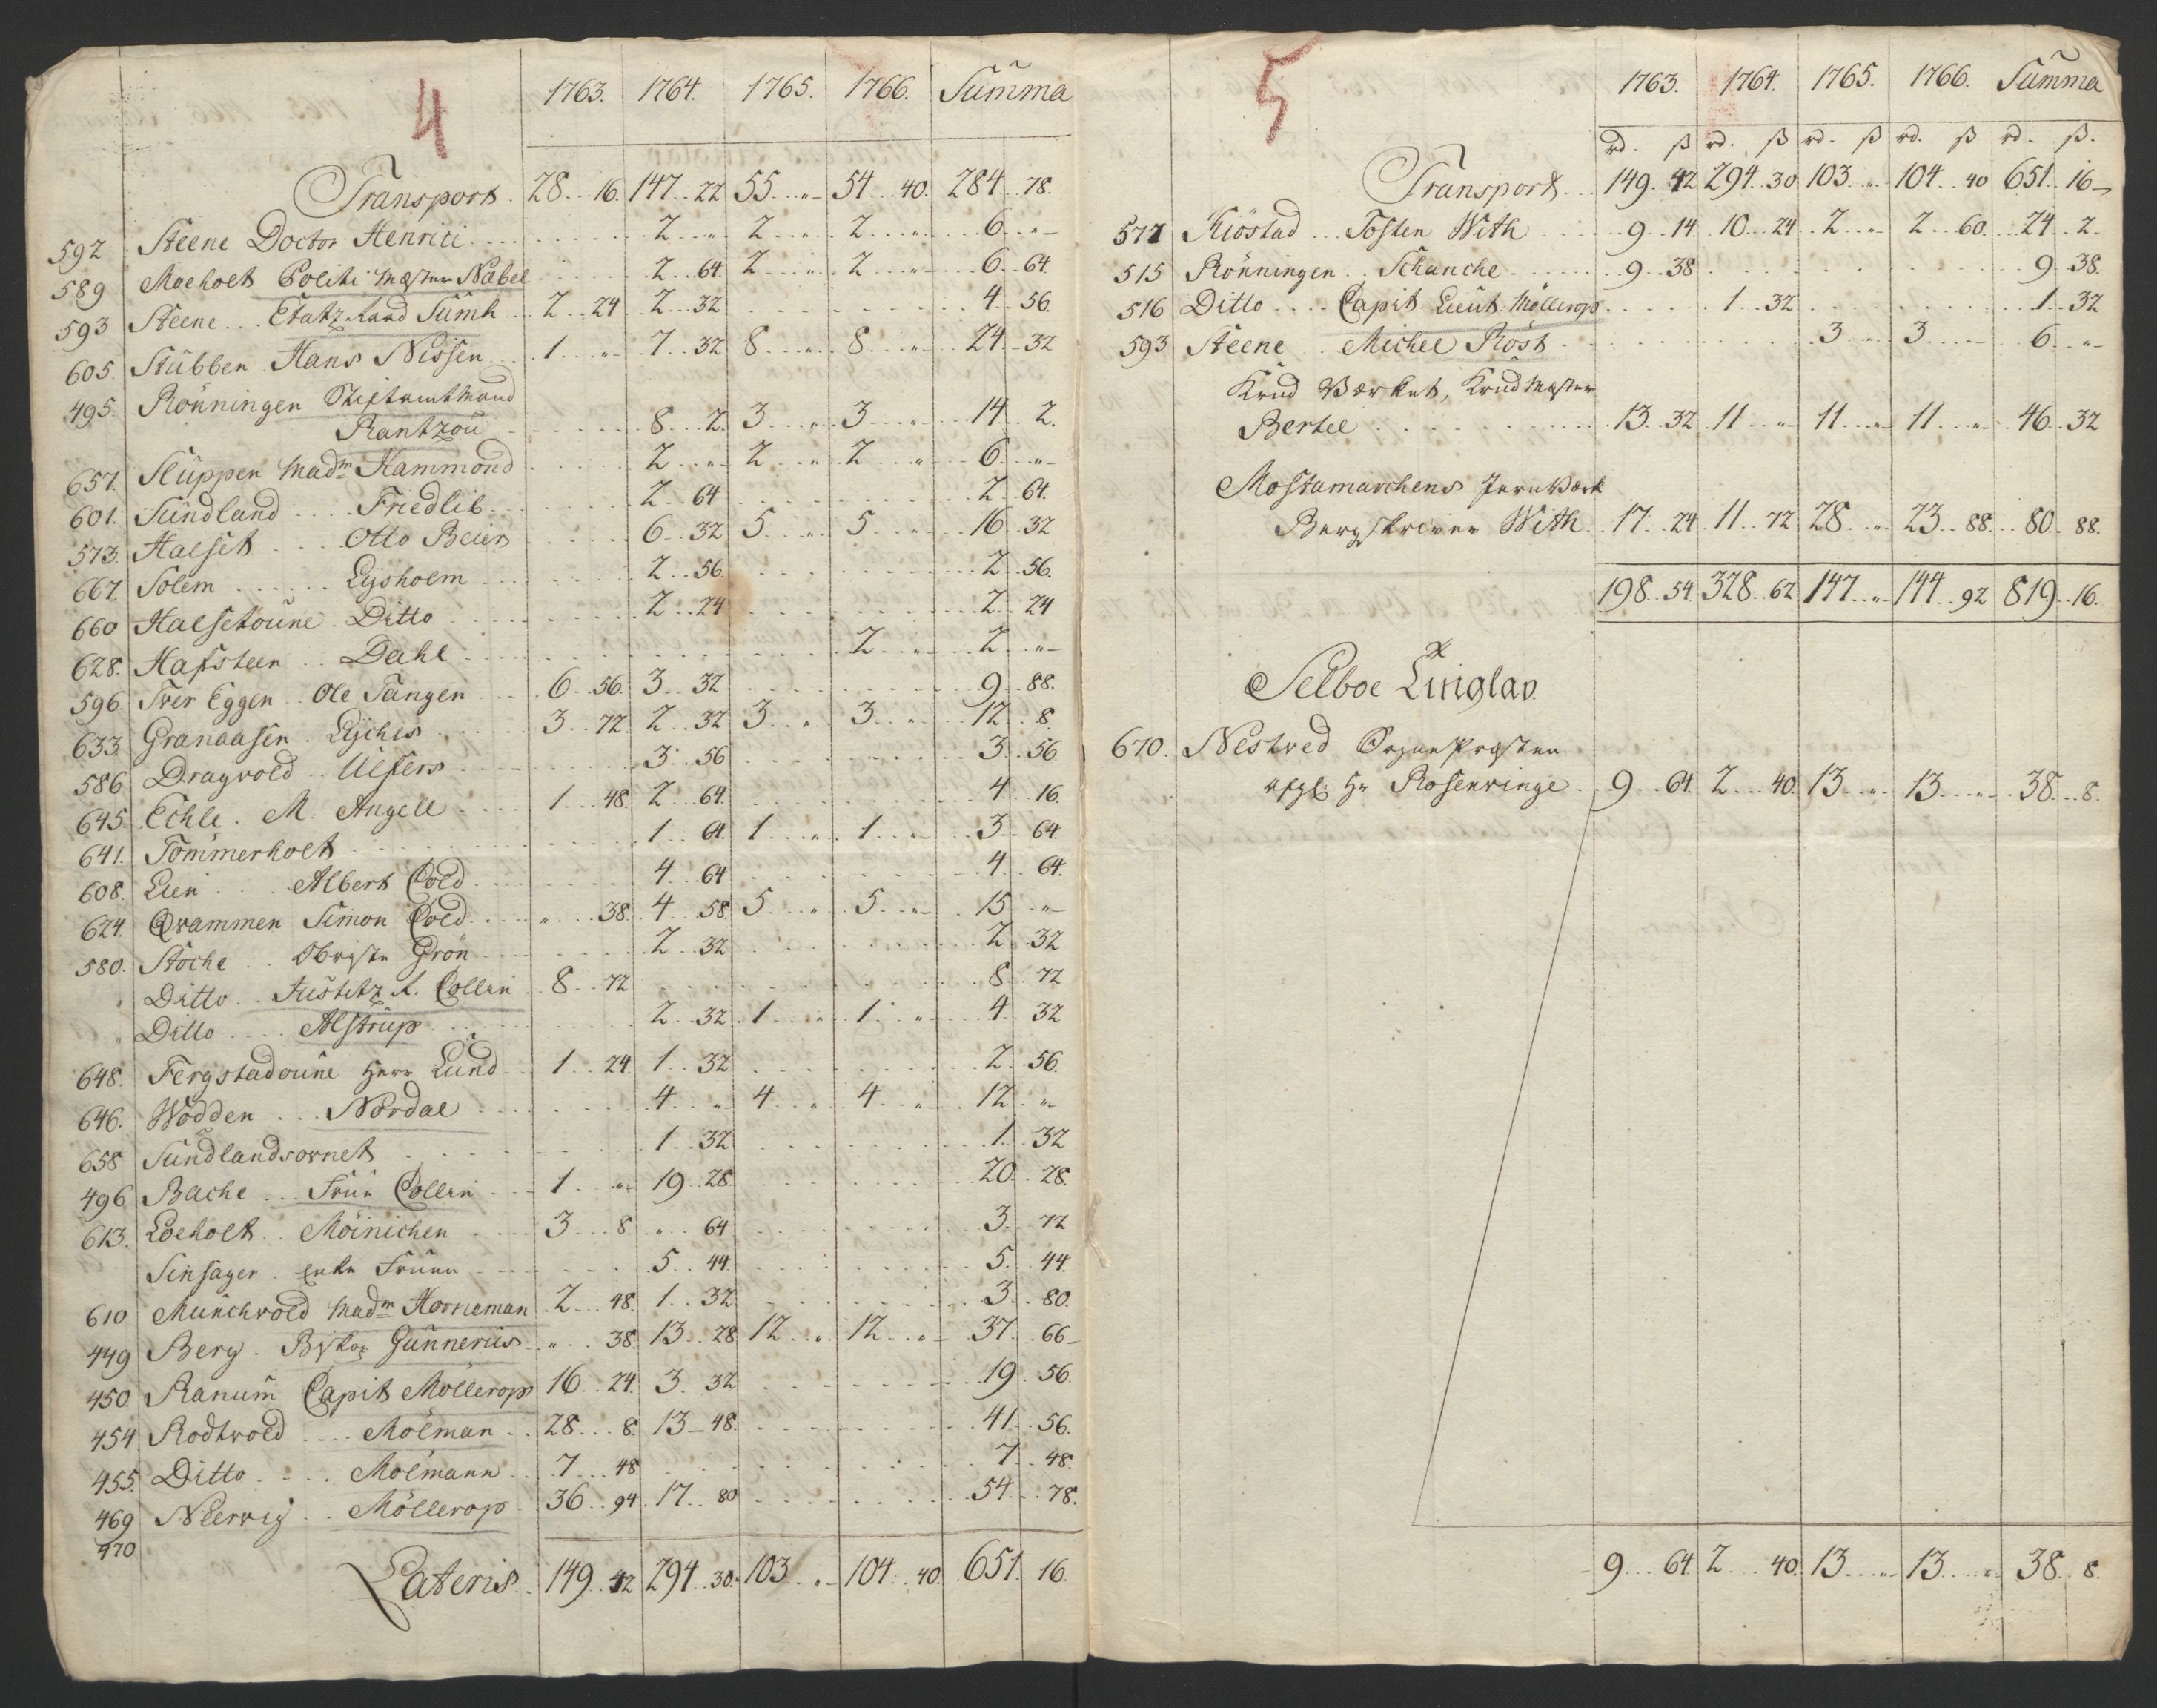 4
1763. 1764. 1765. 1766. Summa
Transport. 28 . . 16. 147 . . 22 55 . . „ 54 . . 40. 284 . . 78.
592 Steene Doctor Henrici . . . 2 . . „ 2 . . „ 2 . . „ 6 . . „
589 Moeholt Politi Mæster Næbel . . . 2 . . 64. 2 . . „ 2 . . „ 6 . . 64.
593 Steene . . . Etatz Raad Sumh . . 2 . . 24 2 . . 32 4 . . 56
605. Stubben Hans Nissen . . 1 . . „ 7 . . 32 8 . . „ 8 . . „ 24 . . 32
495. Rönningen Stiftamtmand
Rantzou . . . 8 . . 2. 3 . . „ 3 . . „ 14 . . 2.
657. Sluppen Madm Hammond . . . 2 . . „ 2 . . „ 2 . . „ 6 . . „
601. Sundland . . . Friedlib . . . 2 . . 64 2 . . 64.
573. Halset . . . Otto Beier . . . 6 . . 32 5 . . „ 5 . . „ 16 . . 32
667. Solem . . . Lysholm . . . 2 . . 56 2 . . 56.
660 Halsetoune . Ditto . . . 2 . . 24 2 . . 24
628. Hafsteen . . Dahl . . . 2 . . „ 2 . . „
596. Tver Eggen . . Ole Tangen . . 6 . . 56. 3 . . 32 9 . . 88.
633. Granaasen . Lyches . . . 3 . . 72. 2 . . 32 3 . . „ 3 . . „ 12 . . 8.
586 Dragvold . . Ulfers . . . 3 . . 56 3 . . 56
645. Echle . M. Angell . . . 1 . . 48. 2 . . 64. 4 . . 16.
641. Tömmerholt . . . 1 . . 64. 1 . . „ 1 . . „ 3 . . 64.
608. Lien . . . Albert Cold . . . 4 . . 64 4 . . 64.
624. Qvammen Simon Cold . . . „ . . 38. 4 . . 58. 5 . . „ 5 . . „ 15 . . „
580. Stoche . . Obrister Grön . . . 2 . . 32 2 . . 32
„ Ditto . . Justitz R. Collin . . 8 . . 72 8 . . 72
„ Ditto . . . Alstrup . . . 2 . . 32 1 . . „ 1 . . „ 4 . . 32
648. Fergstadoune Herr Lund . . 1 . . 24. 1 . . 32 2 . . 56.
646. Wodden . . . Nordal . . . 4 . . „ 4 . . „ 4 . . „ 12 . . „
658 Sundlandsovnet . . . 1 . . 32 1 . . 32
496 Bache . . . Frue Collin . . 1 . . „ 19 . . 28. 20 . . 28.
613. Loeholt . . Möinichen . . . 3 . . 8. „ . . 64 3 . . 72
Sinsager . Enke Fruen . . . 5 . . 44. 5 . . 44.
610 Munchvold Madm Horneman . 2 . . 48. 1 . . 32 3 . . 80.
449 Berg . Biskop Gunnerus . . „ . . 38. 13 . . 28 12 . . „ 12 . . „ 37 . . 66
450. Ranum Capit Möllerop 16 . . 24. 3 . . 32 19 . . 56.
454 Rodtvold . . . Molman . . 28 . . 8. 13 . . 48. 41 . . 56.
455. Ditto . . . Molmann . . 7 . . 48 7 . . 48.
469 Neervig . . Möllerop . . 36 . . 94. 17 . . 80 54 . . 78.
470
Lateris . . 149 . . 42 294 . . 30. 103 . . „ 104 . . 40. 651. 16.
5
1763. 1764. 1765. 1766. Summa
rd. ß rd. ß rd. ß rd. ß rd. ß.
Transport . . . 149 . . 42 294 . . 30 103 . . „ 104 . . 40 651 . . 16
577 Kiöstad . . Tosten With . . . 9 . . 14. 10 . . 24 2 . . „ 2 . . 60. 24 . . 2.
515 Rönningen . . Schanche . . . 9 . . 38 9 . . 38.
516 Ditto . . . Capit. Lieut. Möllerop . . . 1 . . 32 1 . . 32
593 Steene . . Michel Röst . . . 3 . . „ 3 . . „ 6 . . „
Krud Værket, Krudmæster
Bertel . . . 13 . . 32 11 . . „ 11 . . „ 11 . . „ 46 . . 32
Mostamarchens Jernværk
Bergskriver With . 17 . . 24 11 . . 72 28 . . „ 23 . . 88. 80 . . 88.
198 . . 54 328 . . 62 147 . . „ 144 . . 92 819 . . 16.
Selboe Tinglav.
670. Nestved Sogneprosten
Hr Rosenvinge . . 9 . . 64 2 . . 40. 13 . . „ 13 . . „ 38 . . 8.
9 . . 64 2 . . 40. 13 . . „ 13 . . „ 38 . . 8.